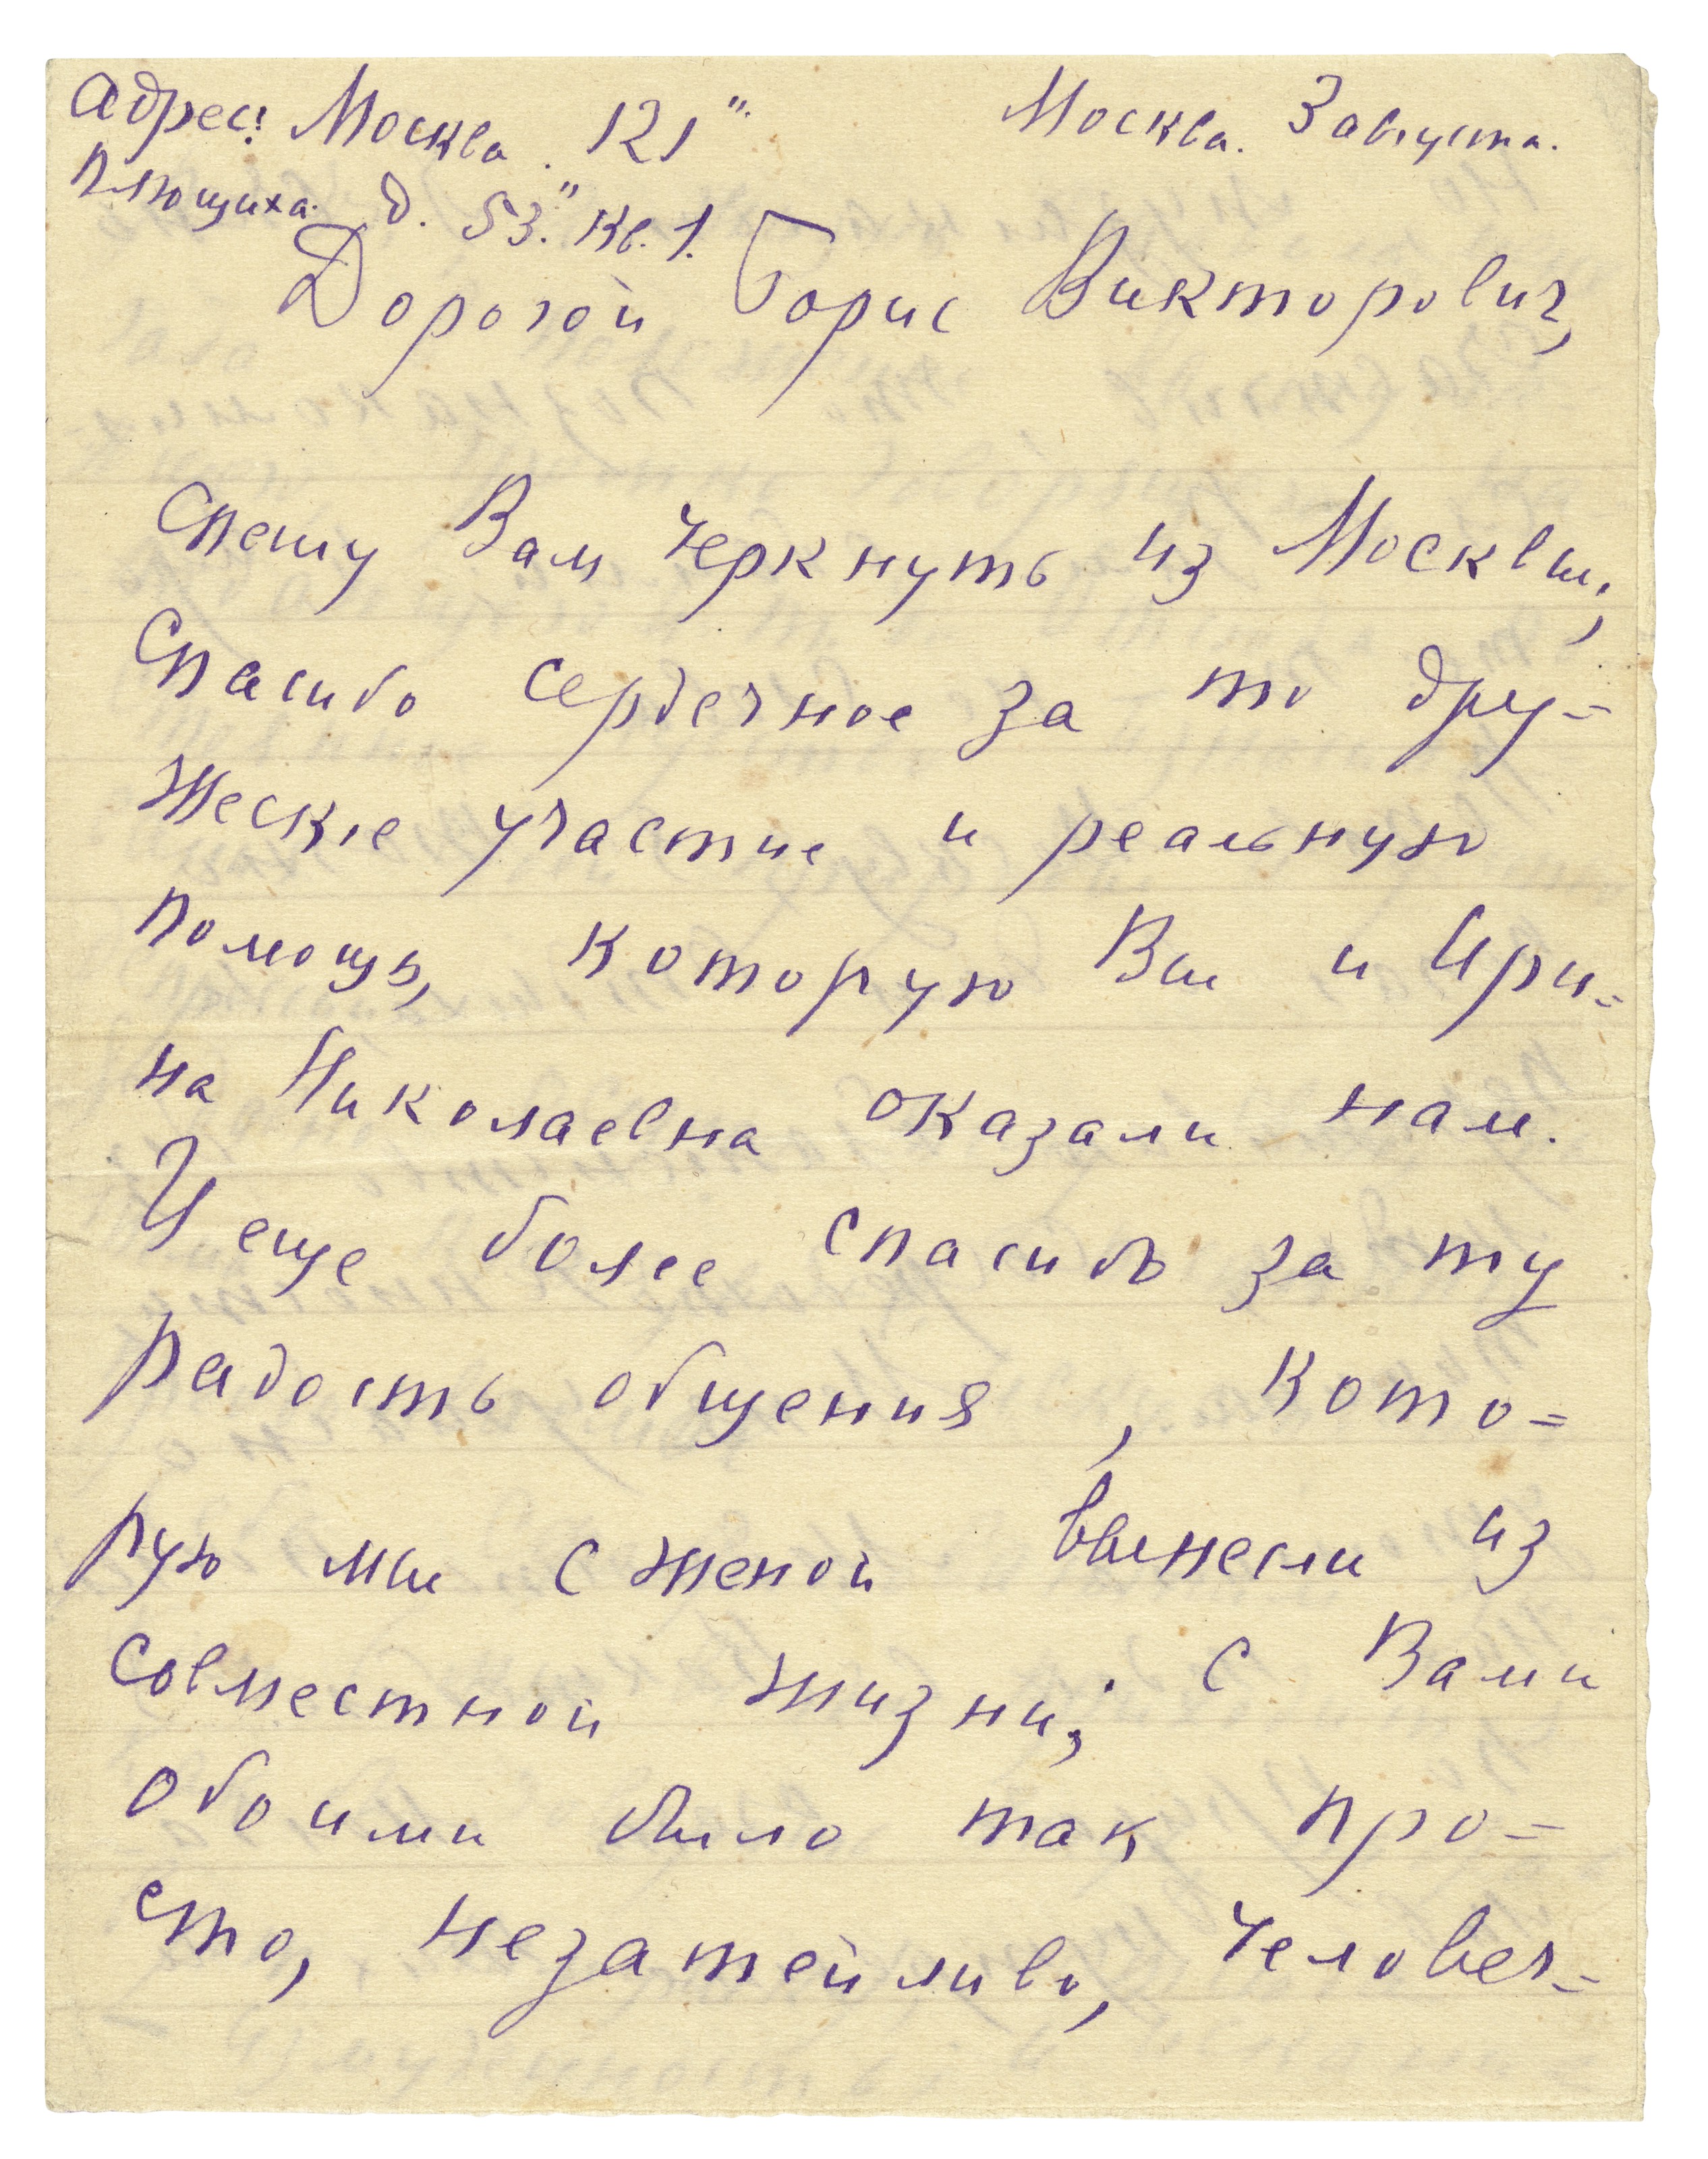 Адрес: Москва. 121"
Москва. 3 августа.
Плющиха. д. 53." кв. 1.
Дорогой Борис Викторович,
Спешу Вам черкнуть из Москвы;
Спасибо сердечное за то дру=
жеское участие и реальную
помощь, которую Вы и Ири=
на Николаевна оказали нам.
И еще более спасибо за ту
радость общения, кото=
рую мы с женой вынесли из
совместной жизни; с Вами
обоими было так про=
сто, незатейливо, человеч=